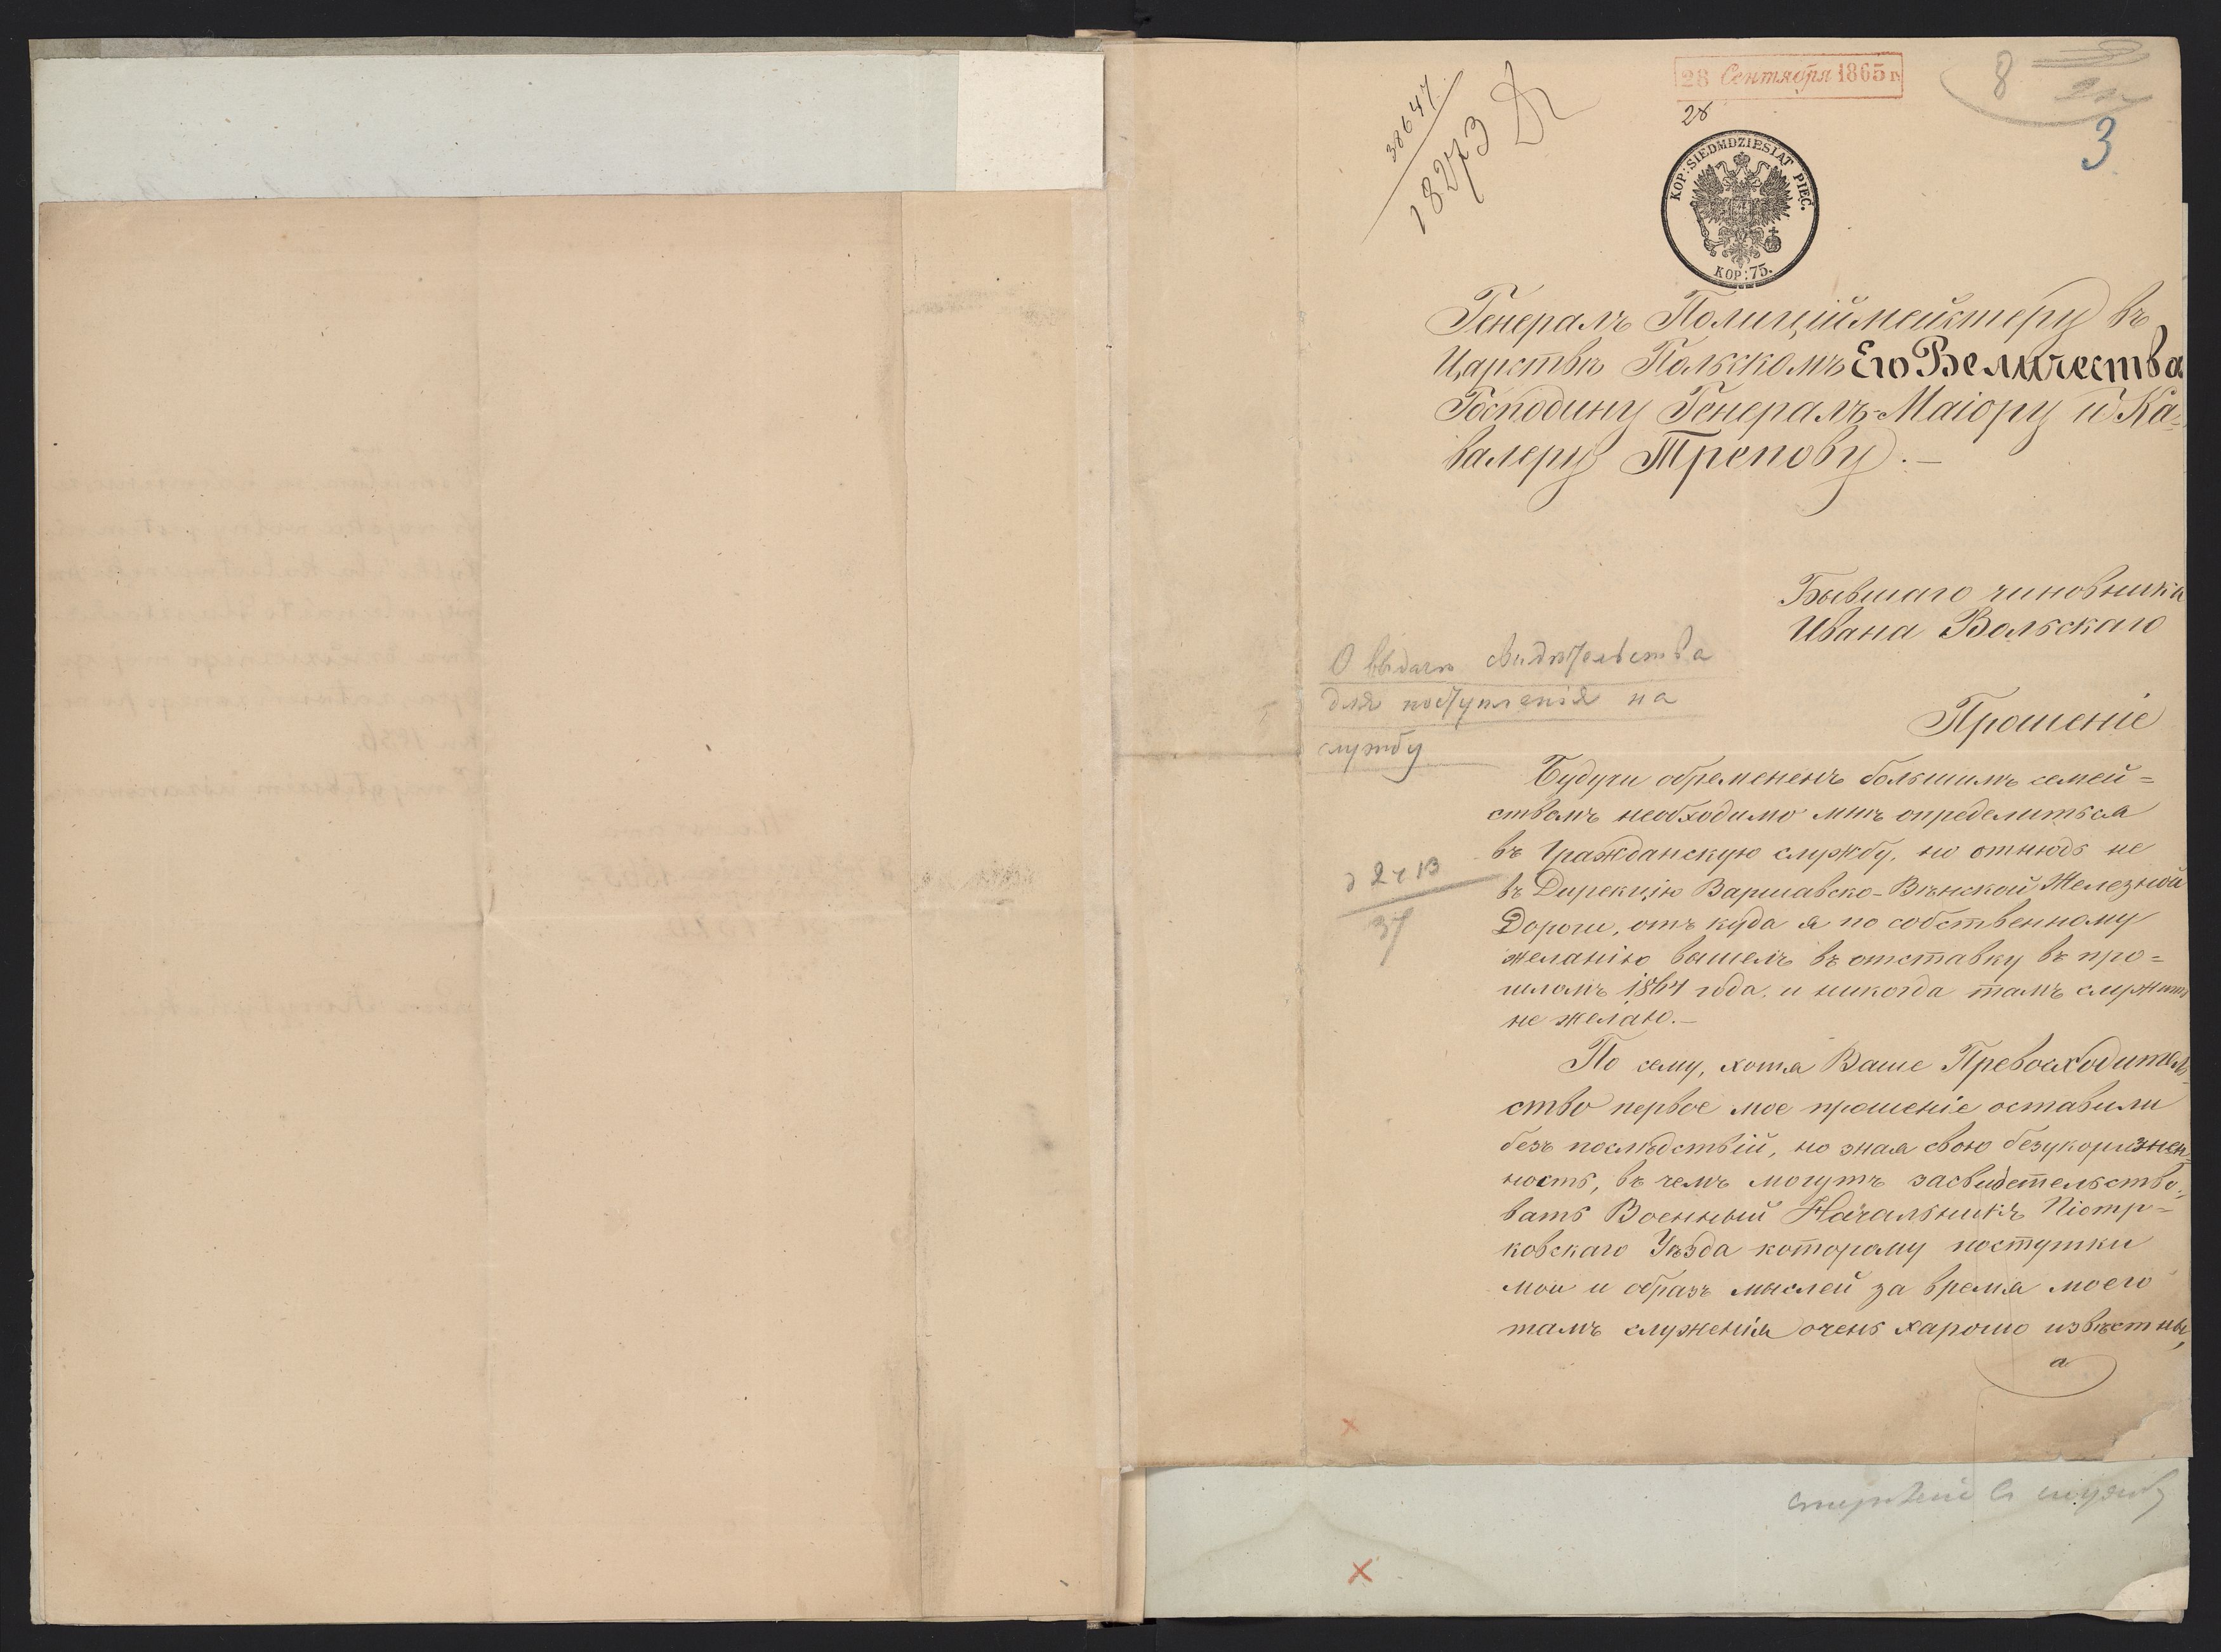 28 Сентября 1865 г.
28
38647
18273
8
3
KOP: SIEDMDZIESIĄT PIĘĆ.
KOP: 75.
Генералъ Полиціймейстеру въ
Царствѣ Польскомъ Его Величества
Господину Генералъ-Маіору и Ка=
валеру Трепову.—
Бывшаго чиновника
Ивана Вольскаго
О выдачѣ свидѣтельства
для поступленія на
службу
Прошеніе
Будучи обремененъ большимъ семей=
ствомъ необходимо мнѣ определиться
въ Гражданскую службу, но отнюдь не
въ Дирекцію Варшавско-Вѣнской Железной
Дороги, отъ куда я по собственному
желанію вышелъ въ отставку въ про=
шломъ 1864 года, и никогда тамъ служить
не желаю.—
По сему, хотя Ваше Превосходитель=
ство первое мое прошеніе оставили
безъ послѣдствій, но зная свою безукоризнен=
ность, въ чемъ могутъ засвидетельство=
вать Военный Начальникъ Піотр=
ковскаго Уѣзда которому поступки
мои и образъ мыслей за время моего
тамъ служенія очень харошо извѣстны,
а
37